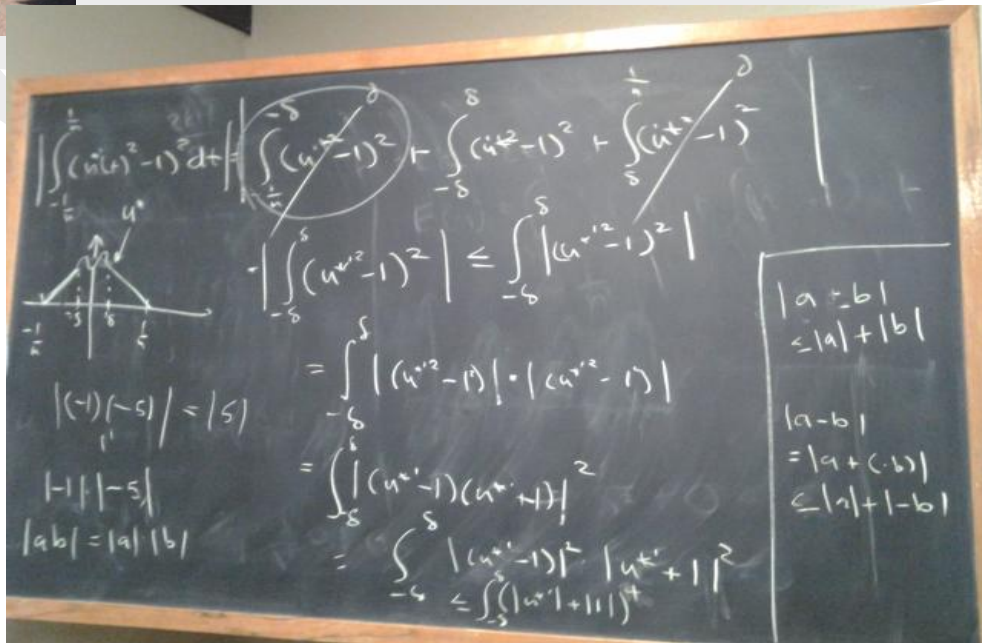 |∫_{-1/n}^{1/n} (u*'(t)² -1)² dt| = | ∫_{-1/n}^{-δ} (u*'² -1)² + ∫_{-δ}^{δ} (u*'² -1)² + ∫_{δ}^{1/n} (u*'² -1)² |
0 0
u*
-1/n -δ δ 1/n
|∫_{-δ}^{δ} (u*'² -1)²| ≤ ∫_{-δ}^{δ} |(u*'² -1)²|
= ∫_{-δ}^{δ} |(u*'² -1)| · |(u*'² -1)|
= ∫_{-δ}^{δ} |(u*' -1)(u*' +1)|²
= ∫_{-δ}^{δ} |(u*' -1)|² · |u*' +1|²
≤ ∫_{-δ}^{δ} (|u*'| + |1|)⁴
|(-1)(-5)| = |5|
|-1| · |-5|
|ab| = |a| |b|
|a + b|
≤ |a| + |b|
|a - b|
= |a + (-b)|
≤ |a| + |-b|